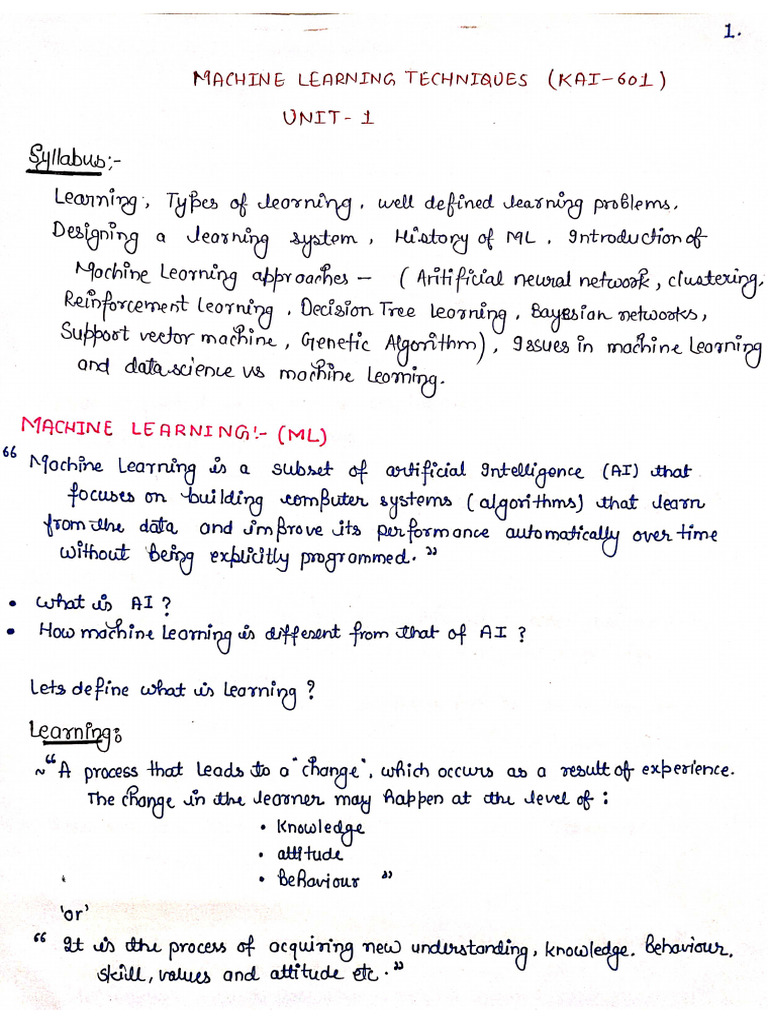 1.
MACHINE LEARNING TECHNIQUES (KAI-601)
UNIT-1
Syllabus:-
Learning, Types of learning, well defined learning problems,
Designing a learning system, History of ML, Introduction of
Machine Learning approaches - (Aritificial neural network, clustering,
Reinforcement learning, Decision Tree learning, Bayesian networks,
Support vector machine, Genetic Algorithm), Issues in machine Learning
and data science vs machine learning.
MACHINE LEARNING:- (ML)
" Machine Learning is a subset of artificial Intelligence (AI) that
focuses on building computer systems (algorithms) that learn
from the data and improve its performance automatically over time
without being explicitly programmed."
• What is AI?
• How machine learning is different from that of AI?
Lets define what is learning?
Learning:
~ "A process that leads to a "change", which occurs as a result of experience.
The change in the learner may happen at the level of :
• Knowledge
• attitude
• Behaviour "
'or'
" It is the process of acquiring new understanding, knowledge, Behaviour,
skill, values and attitude etc."